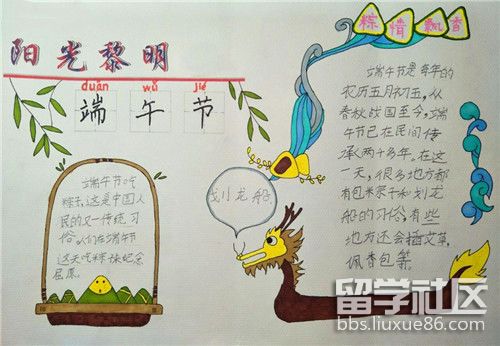 阳光黎明
duān wǔ jié
端午节
粽情飘香
端午节是每年的
农历五月初五,从
春秋战国至今,端
午节已在民间传
承两千多年。在这
一天,很多地方都
有包米粽子和划龙
船的习俗,有些
地方还会插艾草,
佩香包等。
划小龙船
端午节吃
粽子,这是中国人
民的又一传统习
俗。人们在端午节
这天吃粽
纪念
屈原。
留学社区
bbs.liuxue86.com